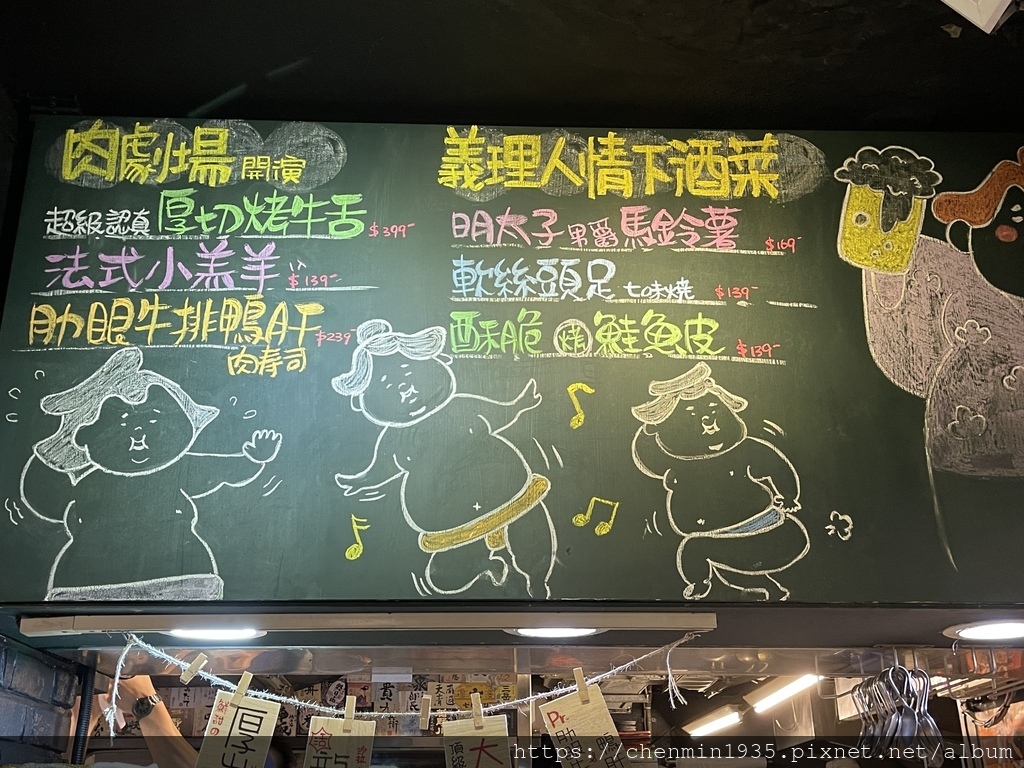 肉劇場 開演
超級認真 厚切烤牛舌 $399-
法式小羔羊 $139-
肋眼牛排鴨肝 $239-
肉寿司
義理人情下酒菜
明太子 馬鈴薯 $169-
軟絲頭足 七味燒 $139-
酥脆 烤 鮭魚皮 $139-
頂級 大
Pr.
https://chenmin1935.pixnet.net/album